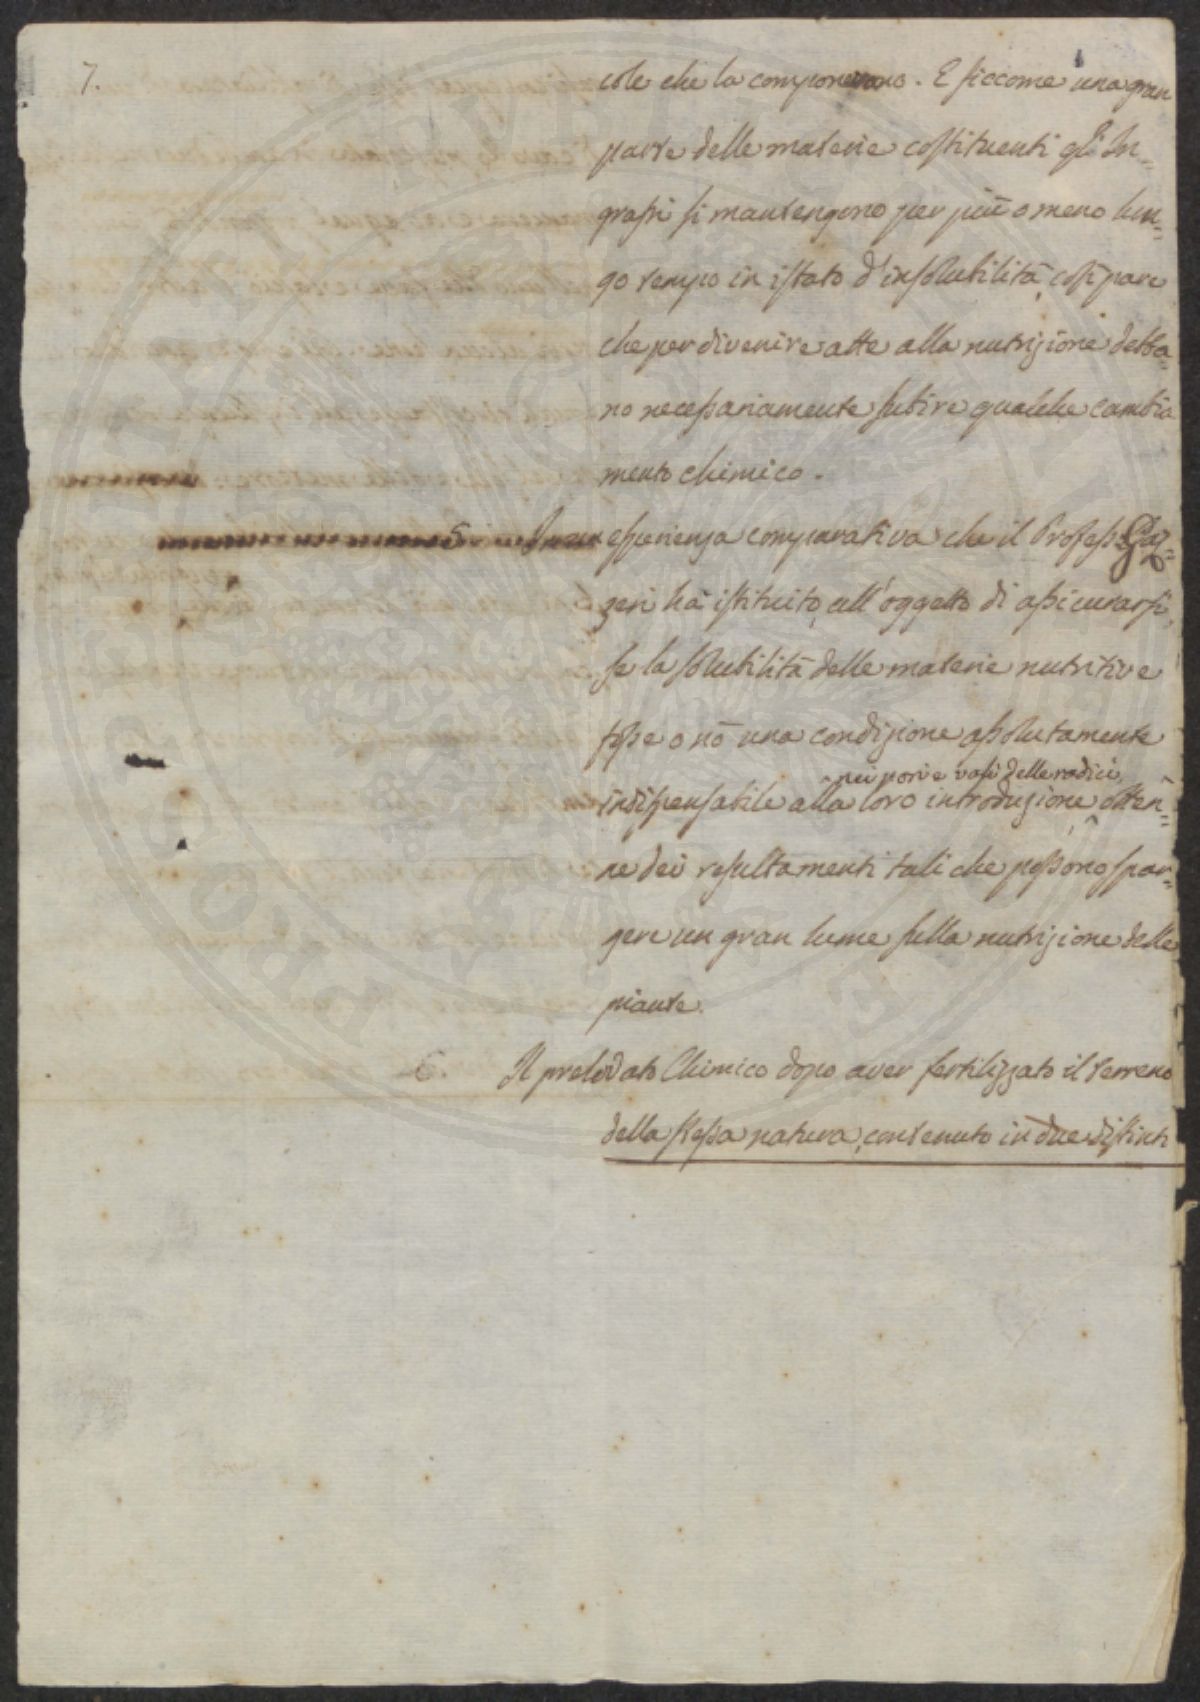 7.
cole che la componevano. E siccome una gran
parte delle materie costituenti gl'In=
grassi si mantengono per più o meno lun=
go tempo in istato d'insolubilità, così pare
che per divenire atte alla nutrizione debba=
no necessariamente subire qualche cambia
mento chimico.
5. In una esperienza comparativa che il Profess. Gaz=
zeri hà istituito, all'oggetto di assicurarsi,
se la solubilità delle materie nutritive
fosse o nò una condizione assolutamente
nei pori e vasi delle radici,
indispensabile alla loro introduzione otten=
ne dei resultamenti tali che possono spar=
gere un gran lume sulla nutrizione delle
piante.
6. Il prelodato Chimico dopo aver fertilizzato il terreno
della stessa natura, contenuto in due distinti